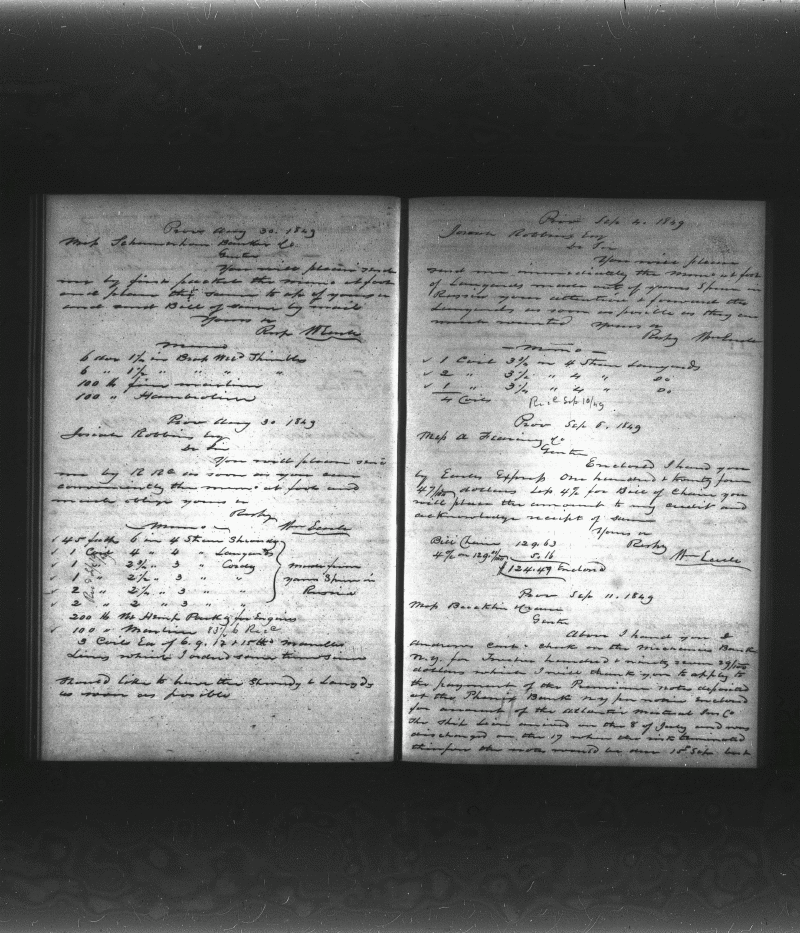 Prov Aug 30. 1849
Mess Schermerhorn Banker & Co
Gents
You will please send
me by first packet the memo at foot
and place the same to a/c of yours &
and send Bill of same by mail
Yours &
Resp Wm Earle
Memo
6 doz 1 1/4 in Brop Wed Thimbles
6 " 1 1/2 " " " "
100 lb fine marline
100 " Hamberline
Prov Aug 30 1849
Josiah Robbins Esq
Dr Sir
You will please send
me by R R Co as soon as you can
conveniently the memo at foot and
much oblige yours &
Respy
Wm Earle
Memo
45 fath 6 in 4 Stran Shrouds
1 Coil 4 " 4 " Lanyards
1 " 2 3/4 " 3 " Cordg
1 " 2 1/4 " 3 "
2 " 2 1/2 " 3 " "
2 " 2 " 3 " "
made from
yarns Spun in
Russia
200 lb Hemp Packg for Engines
100 " Marline Rec
3 Coils Ea of 6. 9. 12 & 15 thd Manilla
Lines which I ordered some time since
Should like to have the Shrouds & Lanyds
as soon as possible
Prov Sep 4. 1849
Josiah Robbins Esq
Dr Sir
You will please
send me immediately the memo at foot
of Lanyards made out of yarns Spun in
Russia your attention & forward the
Lanyards as soon as possible as they are
much wanted Yours &
Respy Wm Earle
Memo
1 Coil 3 3/4 in 4 Stran Lanyards
2 " 3 1/2 " 4 " Do
1 " 3 1/4 " 4 " Do
4 Coils Recd Sep 10/49
Prov Sep 6. 1849
Mess A Fearing & Co
Gents
Enclosed I hand you
by Earles Express One hundred & twenty four
49/100 dollars less 4% for Bill of Chain you
will place the amount to my credit and
acknowledge receipt of same
Yours &
Respy
Wm Earle
Bill Chain 129.63
4% on 129. 5.16
$124.49 Enclosed
Prov Sep 11. 1849
Mess Bucklin & Crane
Gents
Above I hand you I
Andrews Cash. check on the Mechanics Bank
N.Y. for hundred & ninety seven 29/100
dollars which I will thank you to apply to
the payment of the Premium note deposited
at the Phenix Bank N.Y. per notice enclosed
for amount of the Atlantic Mutual Ins Co
the Ship Lion arrived on the 8 of July and was
discharged on the 17 when the risk terminated
therefor the note would be due 15th Sep but